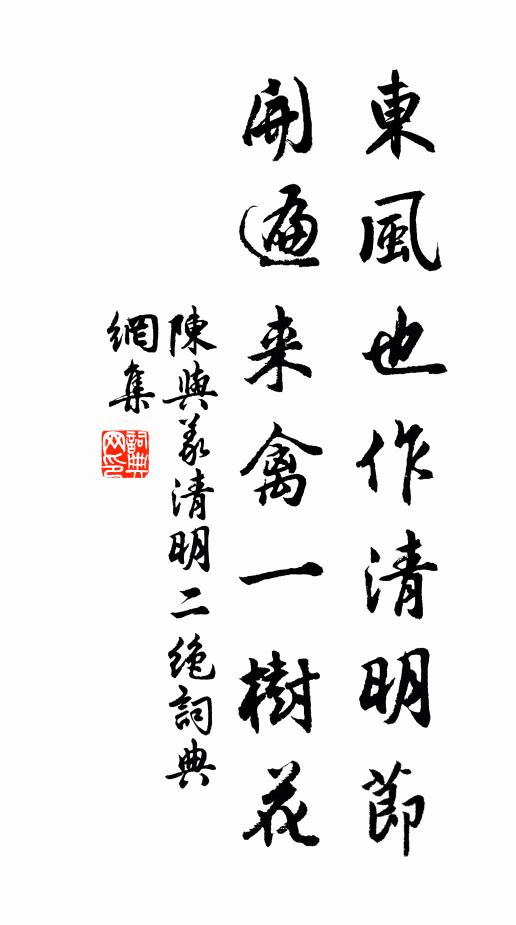 東風也作清明節
開遍来禽一樹花
陳與義清明二絶詞典
網集
詞典
网印